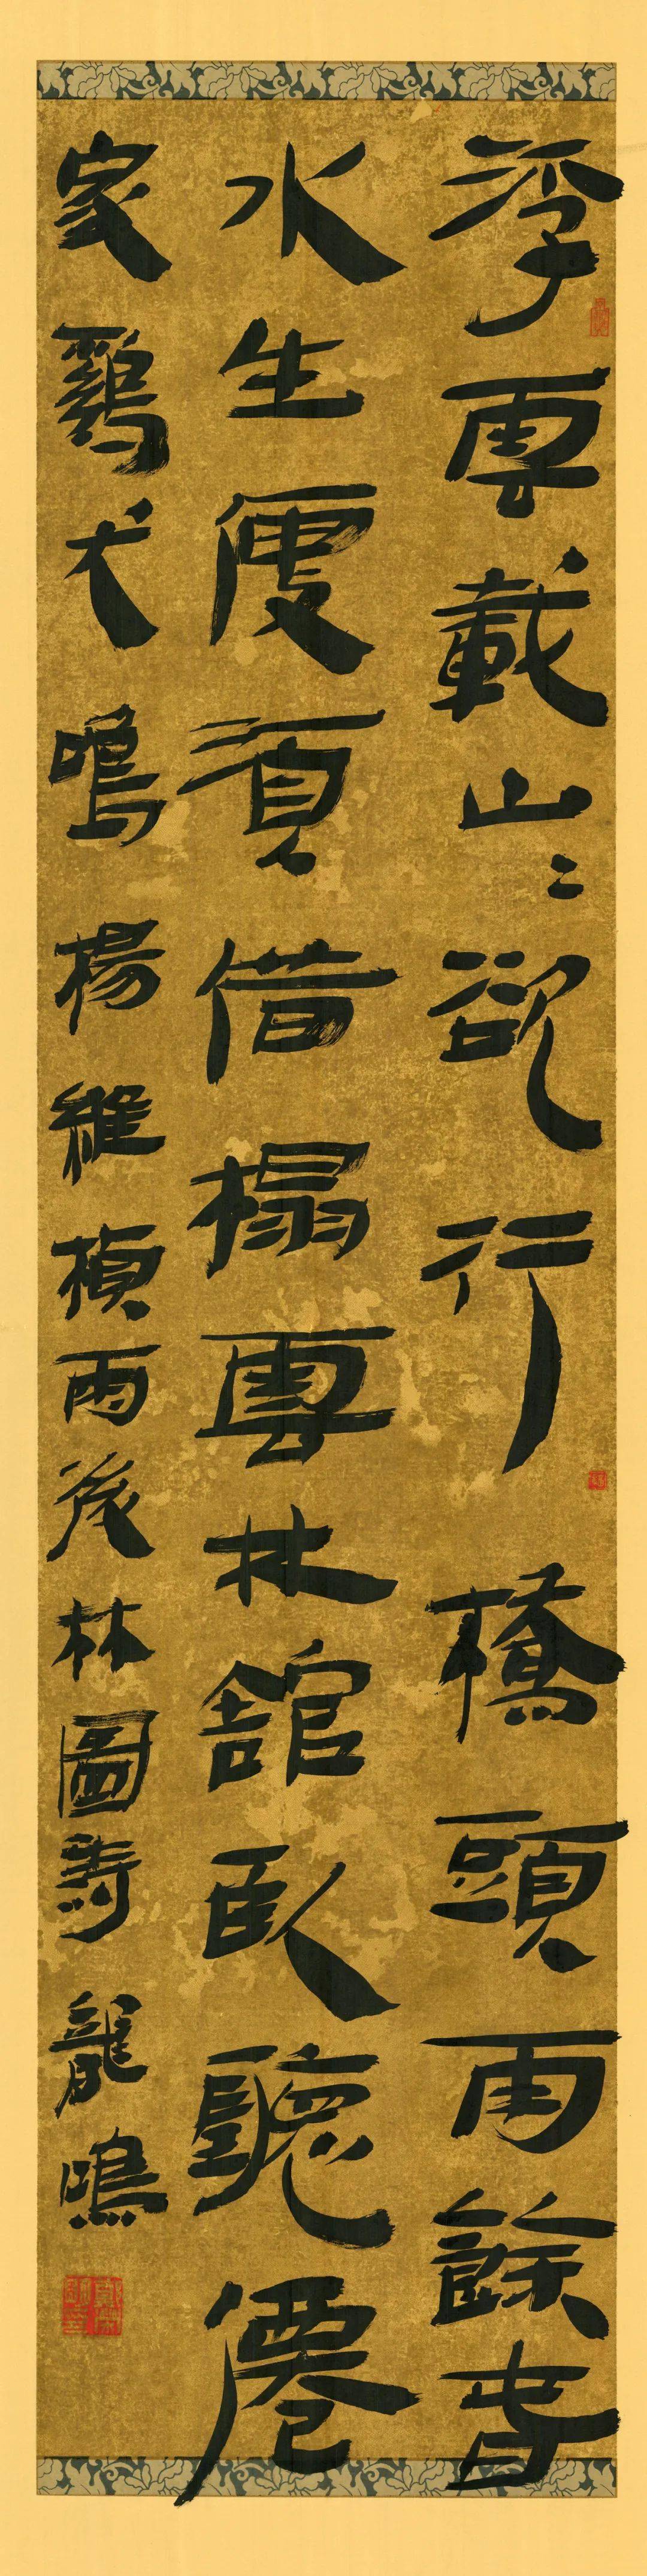 浮雲載山〻欲行橋頭雨餘春
水生便須借榻雲林館臥聽僊
家鷄犬鳴楊維楨雨後林圖壽龍鳴